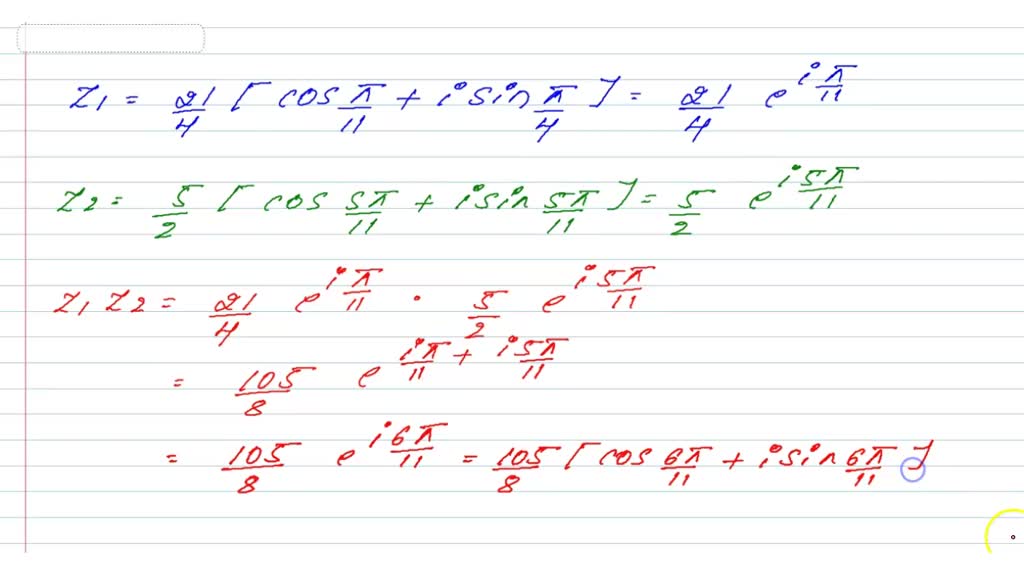 z1 = 21/4 [ cos π/11 + i sin π/4 ] = 21/4 e^(i π/11)
z2 = 5/2 [ cos 5π/11 + i sin 5π/11 ] = 5/2 e^(i 5π/11)
z1 z2 = 21/4 e^(i π/11) · 5/2 e^(i 5π/11)
= 105/8 e^(iπ/11 + i5π/11)
= 105/8 e^(i 6π/11) = 105/8 [ cos 6π/11 + i sin 6π/11 ]